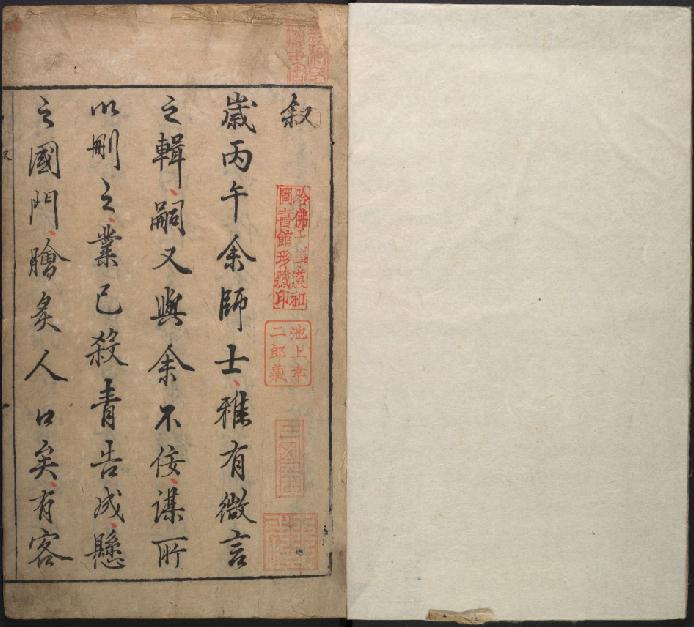 叙
歲丙午余師士雅有微言
之輯嗣又與余不佞謀所
以刪之業已殺青告成懸
之國門膾炙人口矣有客
哈佛大學漢和圖書館珍藏印
池上幸二郎藏